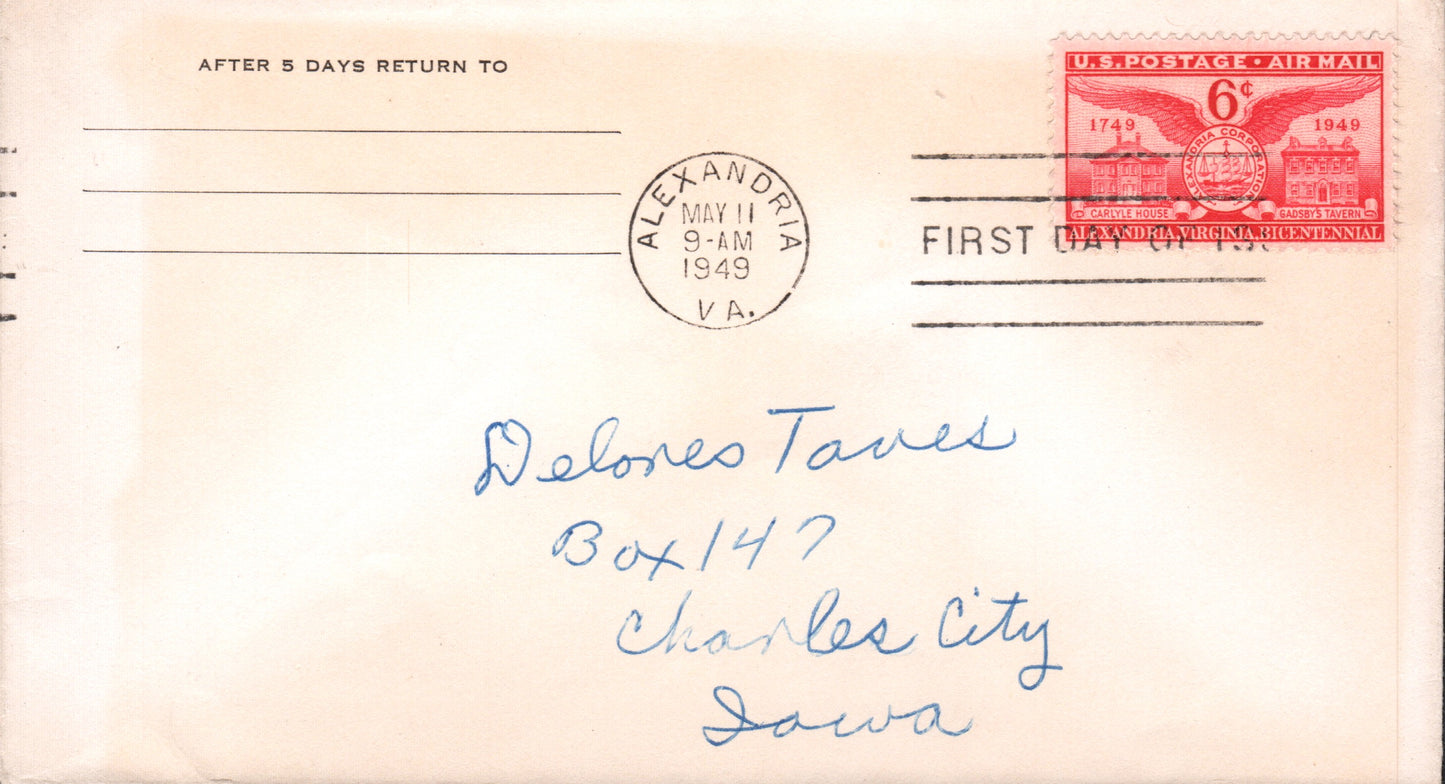 AFTER 5 DAYS RETURN TO
U.S. POSTAGE • AIR MAIL
6¢
1749 1949
ALEXANDRIA CORPORATION
CARLYLE HOUSE GADSBY'S TAVERN
ALEXANDRIA, VIRGINIA, BICENTENNIAL
ALEXANDRIA
MAY 11
9-AM
1949
VA.
FIRST DAY OF ISS
Delores Taves
Box 147
Charles City
Iowa